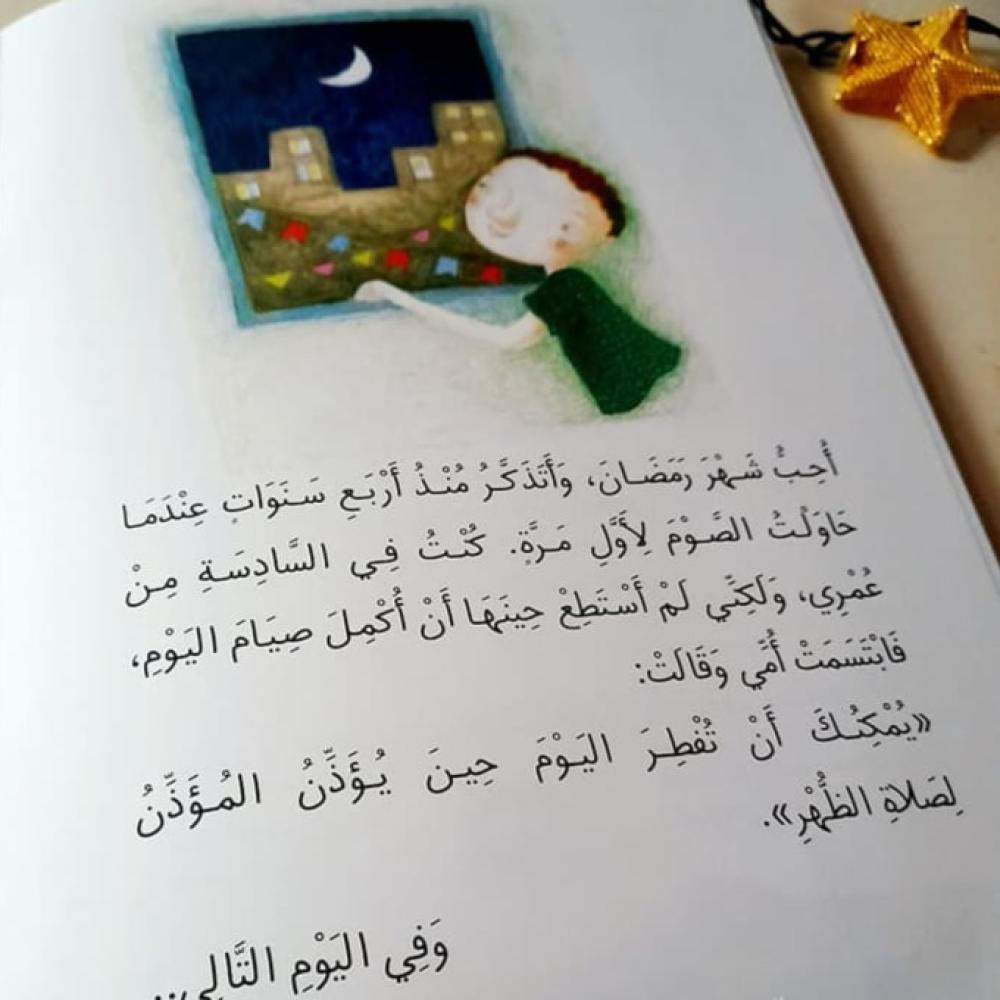 أُحِبُّ شَهْرَ رَمَضَانَ، وَأَتَذَكَّرُ مُنْذُ أَرْبَعِ سَنَوَاتٍ عِنْدَمَا
حَاوَلْتُ الصَّوْمَ لِأَوَّلِ مَرَّةٍ. كُنْتُ فِي السَّادِسَةِ مِنْ
عُمْرِي، وَلَكِنَّي لَمْ أَسْتَطِعْ حِينَهَا أَنْ أُكْمِلَ صِيَامَ اليَوْمِ،
فَابْتَسَمَتْ أُمِّي وَقَالَتْ:
«يُمْكِنُكَ أَنْ تُفْطِرَ اليَوْمَ حِينَ يُؤَذِّنُ المُؤَذِّنُ
لِصَلاةِ الظُّهْرِ».
وَفِي اليَوْمِ التَّالِي...